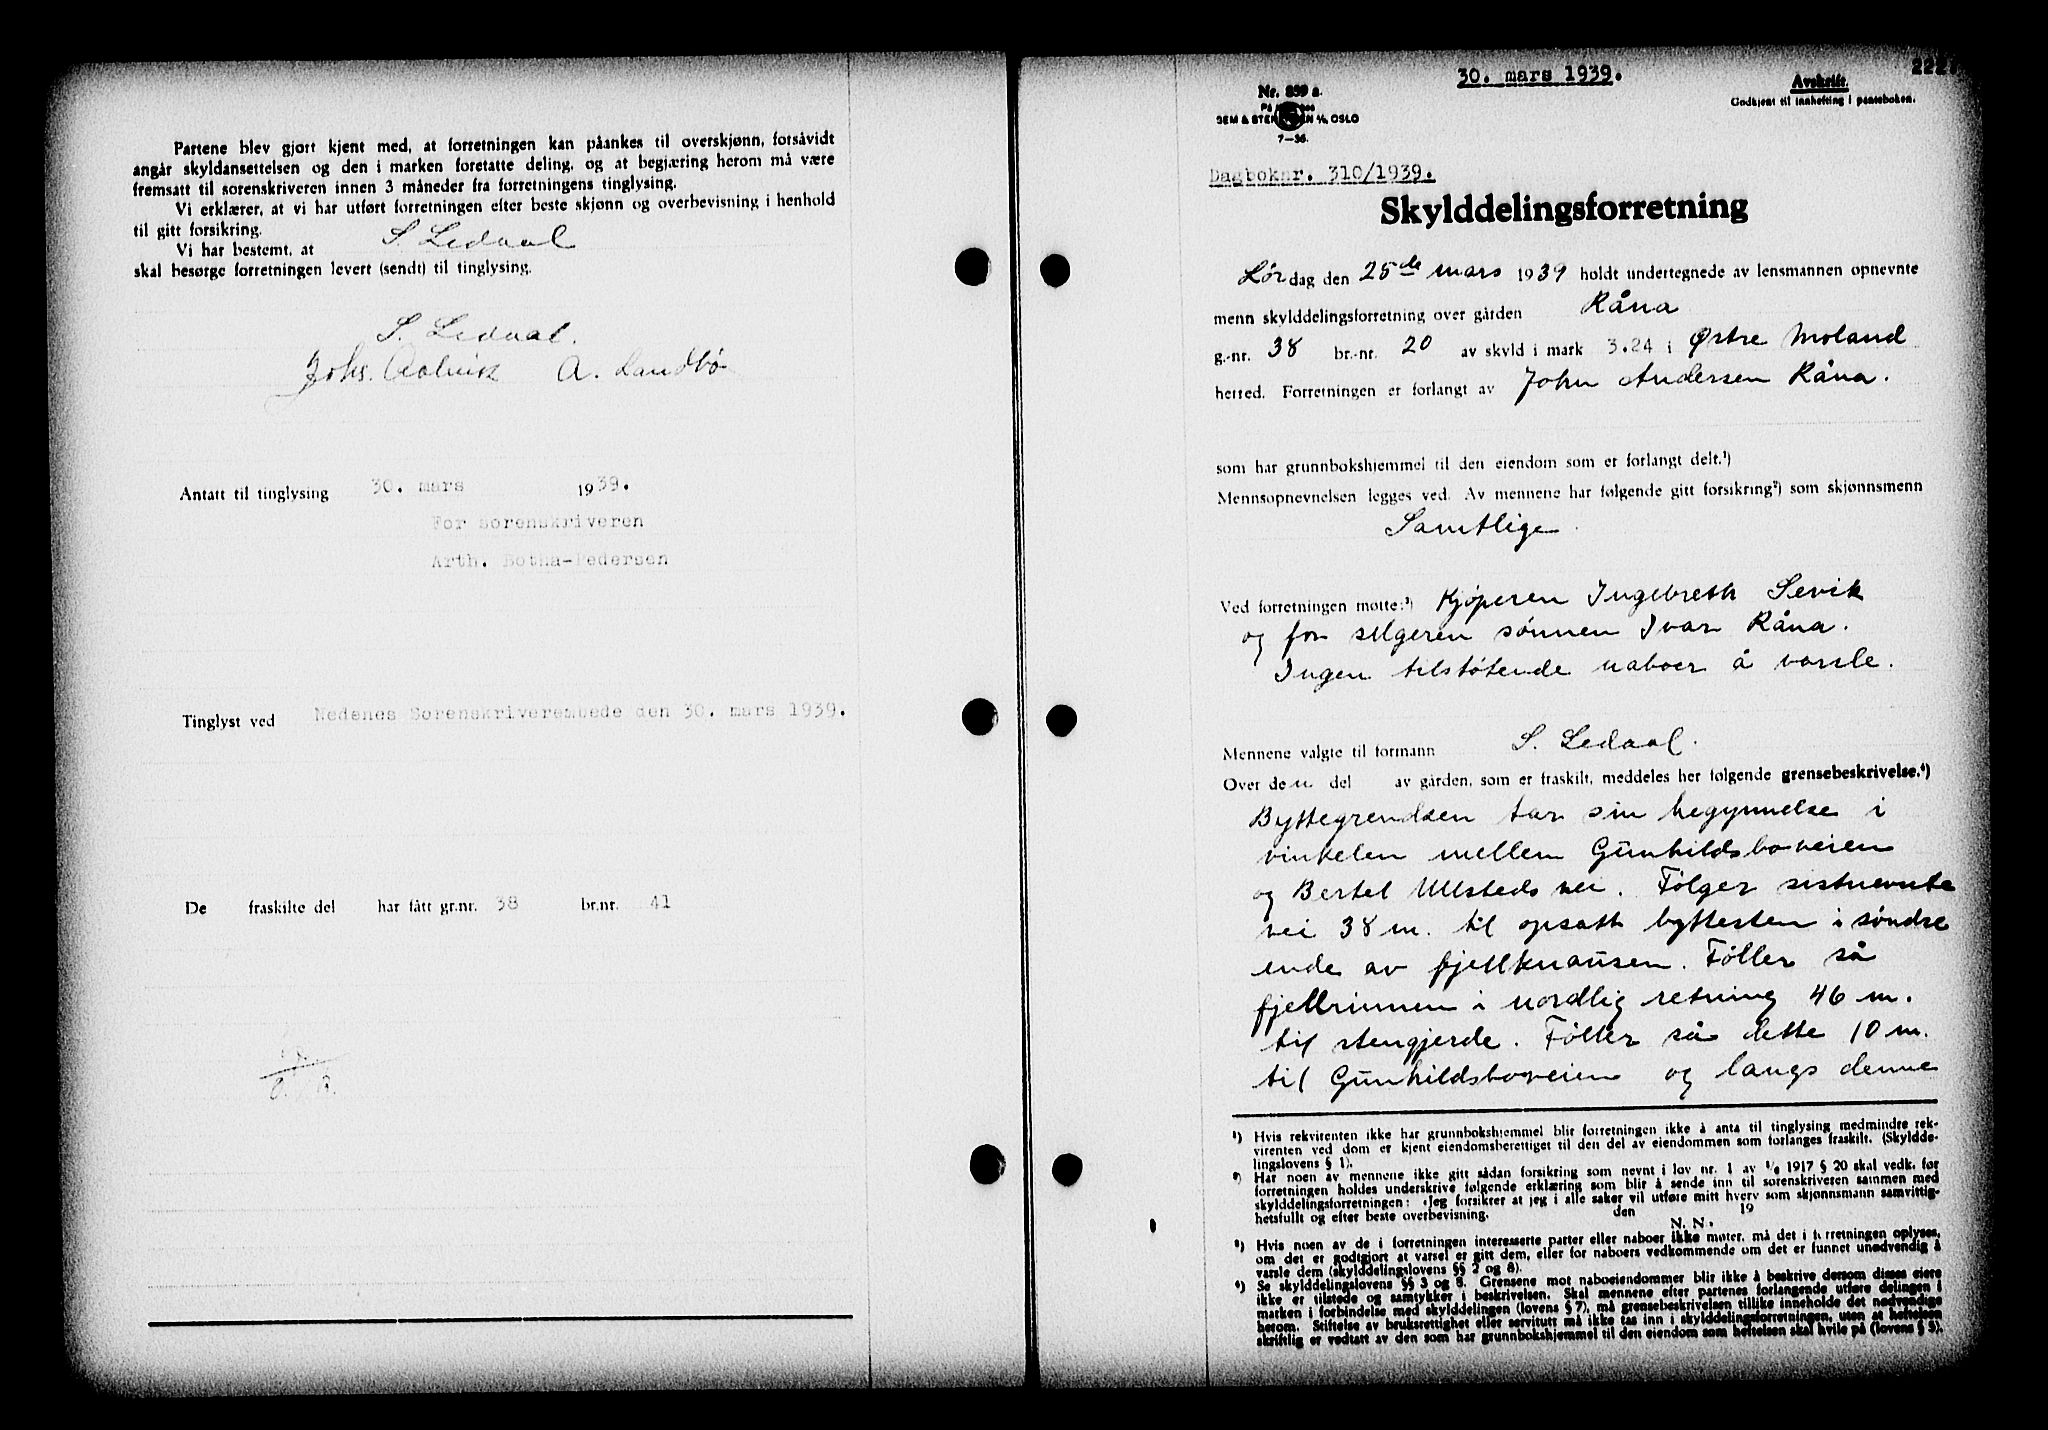 Partene blev gjort kjent med, at forretningen kan påankes til overskjønn, forsåvidt
angår skyldansettelsen og den i marken foretatte deling, og at begjæring herom må være
fremsatt til sorenskriveren innen 3 måneder fra forretningens tinglysing.
Vi erklærer, at vi har utført forretningen efter beste skjønn og overbevisning i henhold
til gitt forsikring.
Vi har bestemt, at S. Ledaal
skal besørge forretningen levert (sendt) til tinglysing.
S. Ledaal.
Johs. Aalvik A. Landbø
Antatt til tinglysing 30. mars 1939.
For sorenskriveren
Arth. Botna-Pedersen
Tinglyst ved Nedenes Sorenskriverembede den 30. mars 1939.
De fraskilte del har fått gr.nr. 38 br.nr. 41
222
30. mars 1939.
Avskrift.
Godkjent til innhefting i panteboken.
Nr. 859 a.
OSLO
7—36.
Dagboknr. 310/1939.
Skylddelingsforretning
Lørdag den 25de mars 1939 holdt undertegnede av lensmannen opnevnte
menn skylddelingsforretning over gården Råna
g.-nr. 38 br.-nr. 20 av skyld i mark 3.24 i Østre Moland
herred. Forretningen er forlangt av John Andersen Råna.
som har grunnbokshjemmel til den eiendom som er forlangt delt.¹)
Mennsopnevnelsen legges ved. Av mennene har følgende gitt forsikring²) som skjønnsmenn
Samtlige.
Ved forretningen møtte:³) Kjøperen Ingebreth Sevik
og for selgeren sønnen Ivar Råna.
Ingen tilstøtende naboer å varsle.
Mennene valgte til formann S. Ledaal.
Over den del av gården, som er fraskilt, meddeles her følgende grensebeskrivelse.⁴)
Byttegrendsen tar sin begynnelse i
vinkelen mellem Gunhildsboveien
og Bertel Ullsteds vei. Følger sistnevnte
vei 38 m. til opsatt byttesten i søndre
ende av fjellknausen. Føller så
fjellrinnen i nordlig retning 46 m.
til stengjerde. Føller så dette 10 m.
til Gunhildsboveien og langs denne
¹) Hvis rekvirenten ikke har grunnbokshjemmel blir forretningen ikke å anta til tinglysing medmindre rek-
virenten ved dom er kjent eiendomsberettiget til den del av eiendommen som forlanges fraskilt. (Skyldde-
lingslovens § 1).
²) Har noen av mennene ikke gitt sådan forsikring som nevnt i lov nr. 1 av 1/6 1917 § 20 skal vedk. før
forretningen holdes underskrive følgende erklæring som blir å sende inn til sorenskriveren sammen med
skylddelingsforretningen: «Jeg forsikrer at jeg i alle saker vil utføre mitt hverv som skjønnsmann samvittig-
hetsfullt og efter beste overbevisning. den 19
N. N.
³) Hvis noen av de i forretningen interesserte parter eller naboer ikke møter, må det i forretningen oplyses,
om det er godtgjort at varsel er gitt dem, eller for naboers vedkommende om det er funnet unødvendig å
varsle dem (skylddelingslovens §§ 2 og 8).
⁴) Se skylddelingslovens §§ 3 og 8. Grensene mot naboeiendommer blir ikke å beskrive dersom disses eiere
ikke er tilstede og samtykker i beskrivelsen. Skal mennene efter partenes forlangende utføre delingen i
marken i forbindelse med skylddelingen (lovens § 7), må grensebeskrivelsen tillike inneholde det nødvendige
herom. Stiftelse av bruksrettighet eller servitutt må ikke tas inn i skylddelingsforretningen, uten at heftelsen
skriftlig er vedtatt av den som har grunnbokshjemmel til den eiendom som heftelsen skal hvile på (lovens § 5).